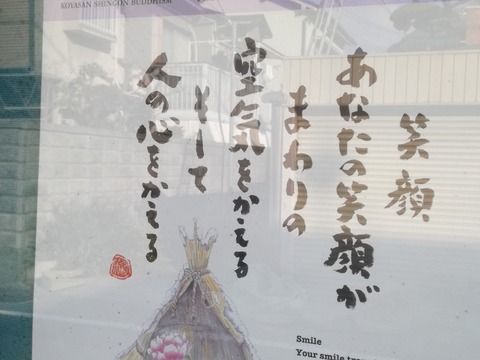 KOYASAN SHINGON BUDDHISM
笑顔
あなたの笑顔が
まわりの
空気をかえる
そして
人の心をかえる
Smile
Your smile